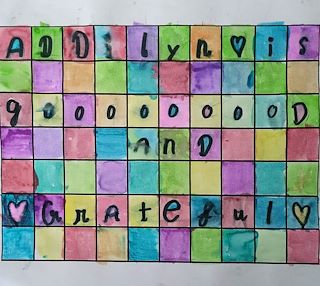 ADDilyn ♥ is
gooooooooD
AND
♥ Grateful ♥